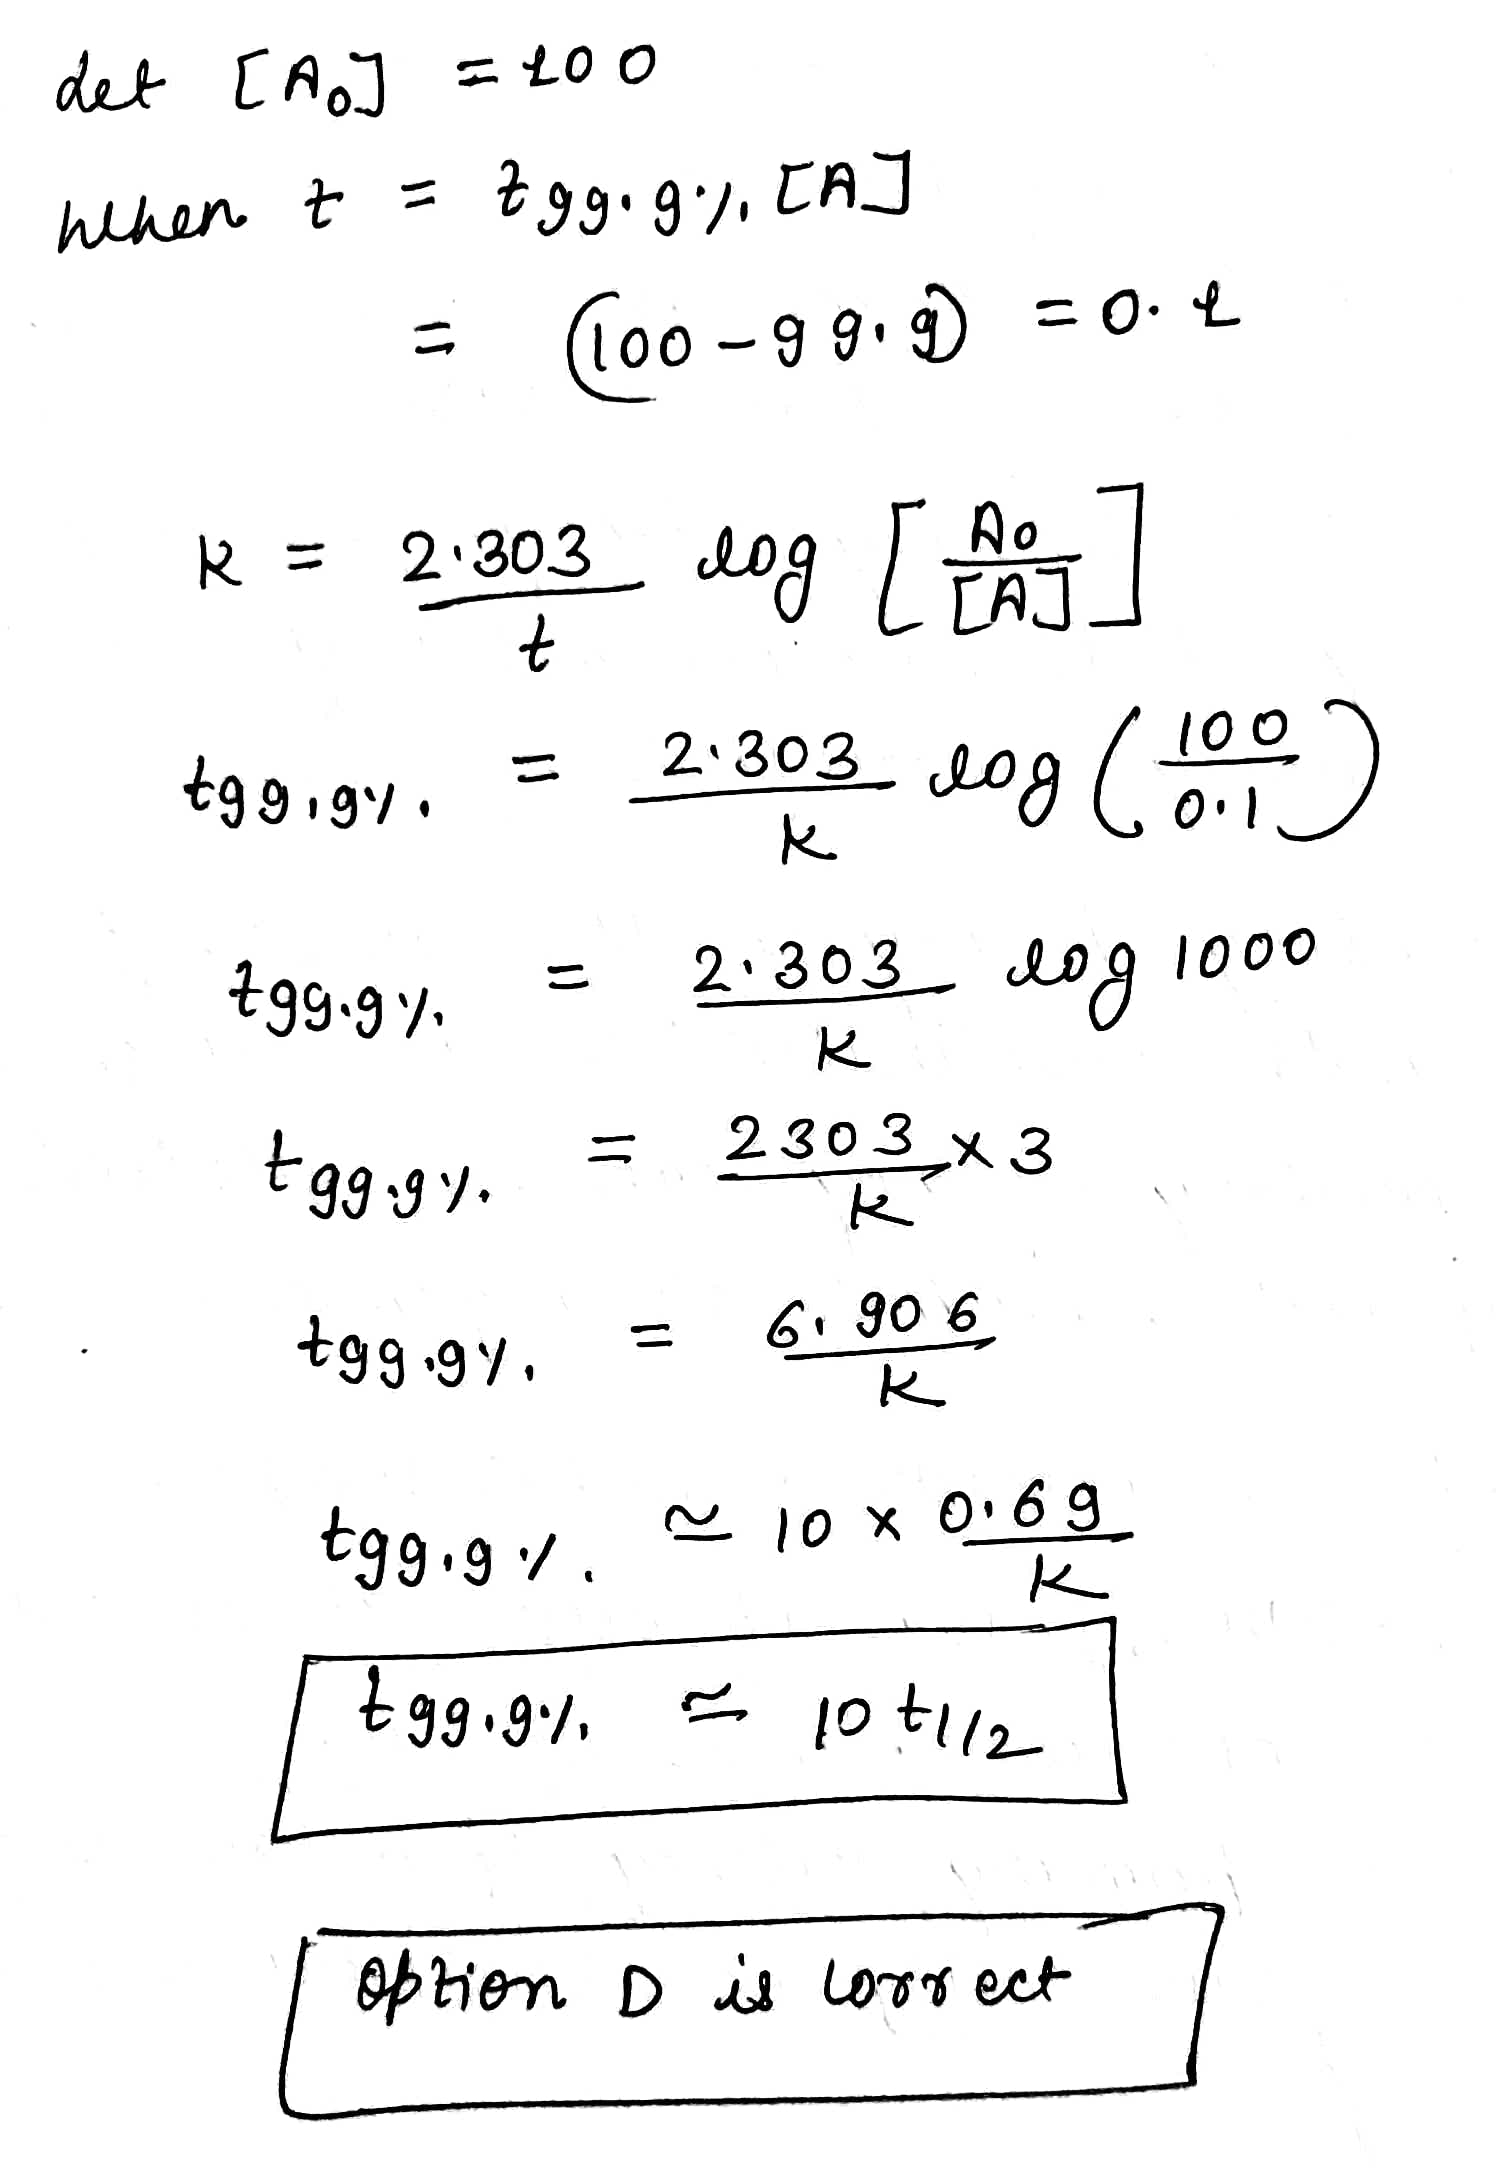 Let [A₀] = 100
when t = t99.9%, [A]
= (100 - 99.9) = 0.1
K = 2.303/t log [A₀/[A]]
t99.9% = 2.303/K log (100/0.1)
t99.9% = 2.303/K log 1000
t99.9% = 2303/K × 3
t99.9% = 6.906/K
t99.9% ≃ 10 × 0.69/K
t99.9% ≃ 10 t1/2
Option D is correct